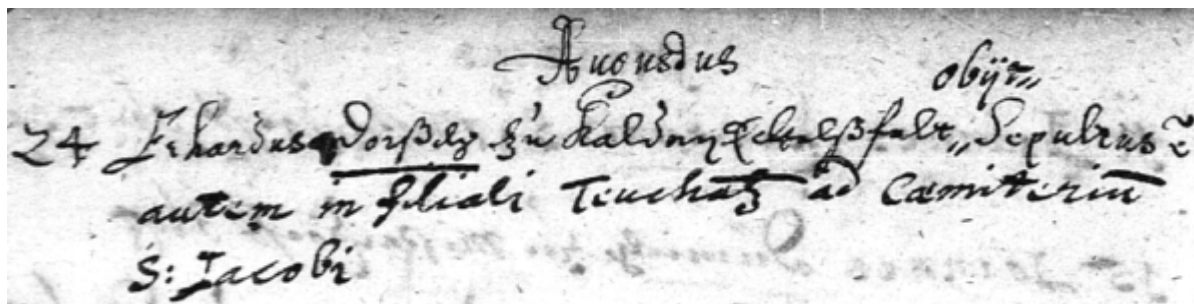 Augustus
obijt
24 Erhardus Dorsch zu Kalten Eckelsfelt„ Sepultus ē
autem in filiali Teuchatz ad Cæmiteriū
S: Jacobi